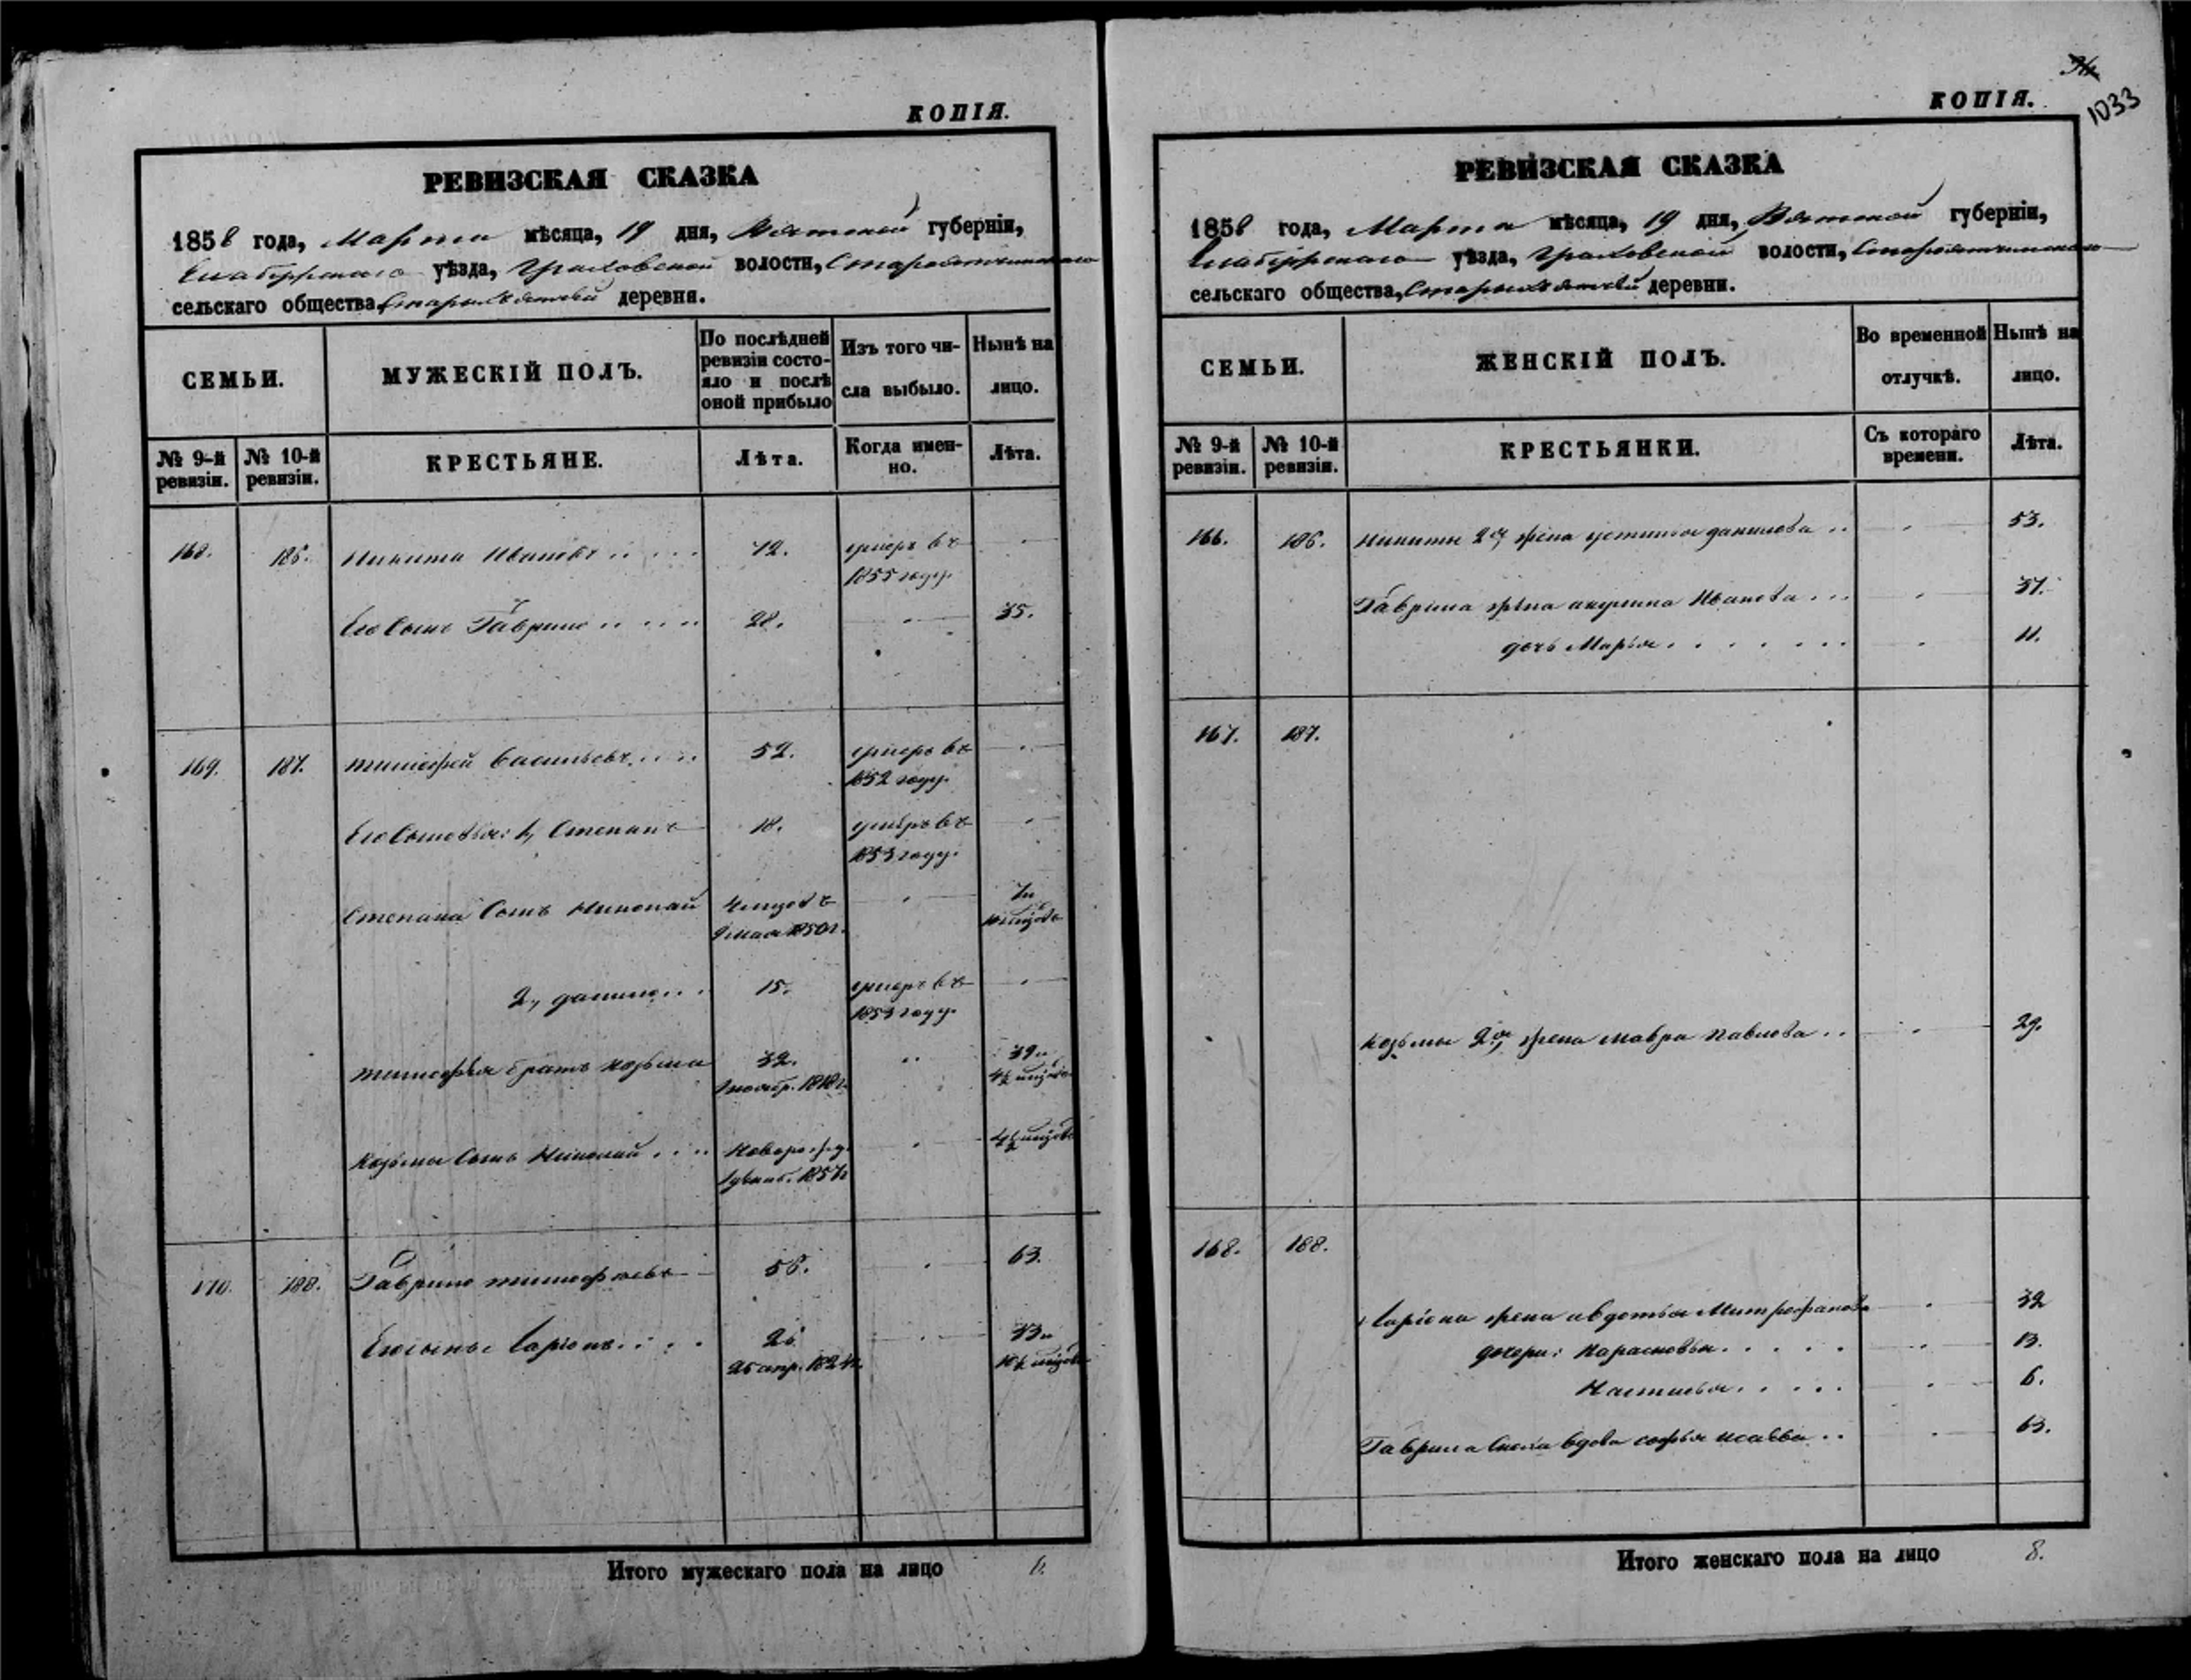 КОПІЯ.
РЕВИЗСКАЯ СКАЗКА
1858 года, Марта мѣсяца, 19 дня, Вятской губерніи,
Елабужскаго уѣзда, Граховской волости,
сельскаго общества, деревни.
СЕМЬИ.
МУЖЕСКІЙ ПОЛЪ.
По послѣдней ревизіи состо-
яло и послѣ оной прибыло
Изъ того чи-
сла выбыло.
Нынѣ на лицо.
№ 9-й ревизіи.
№ 10-й ревизіи.
КРЕСТЬЯНЕ.
Лѣта.
Когда имен-
но.
Лѣта.
168. 186. Никита Ивановъ 72. умеръ въ
1855 году.
Его Сынъ Гаврило 28. 35.
169. 187. Тимофей Васильевъ 52. умеръ въ
1852 году.
Его Сыновья: 1, Степанъ 18. умеръ въ
1853 году.
Степана Сынъ Николай
9 мая 1850 г.
2, Данило 15. умеръ въ
1853 году.
Тимофея братъ Козьма 32. 39 и
1 ноябр. 1818 г. 4½ месяцовъ
Козьмы Сынъ Николай Поворожд. 4½ месяцовъ
1857 г.
170. 188. Гаврило Тимофеевъ 55. 63.
Его сынъ Ларіонъ 26 33 и
25 апр. 1824 г. 10½ месяцовъ
Итого мужескаго пола на лицо 6.
КОПІЯ.
1033
РЕВИЗСКАЯ СКАЗКА
1858 года, Марта мѣсяца, 19 дня, Вятской губерніи,
Елабужскаго уѣзда, Граховской волости,
сельскаго общества, деревни.
СЕМЬИ.
ЖЕНСКІЙ ПОЛЪ.
Во временной отлучкѣ.
Нынѣ на лицо.
№ 9-й ревизіи.
№ 10-й ревизіи.
КРЕСТЬЯНКИ.
Съ котораго времени.
Лѣта.
166. 186. Никиты 2я жена Устинья Данилова 53.
Гаврила жена Акулина Иванова 37.
дочь Марья 11.
167. 187.
Козьмы 2я жена Мавра Павлова 29.
168. 188.
Ларіона жена Авдотья Митрофанова 32
дочери: Парасковья 13.
Настасья 6.
Гаврила вдова Софья Исаева 63.
Итого женскаго пола на лицо 8.